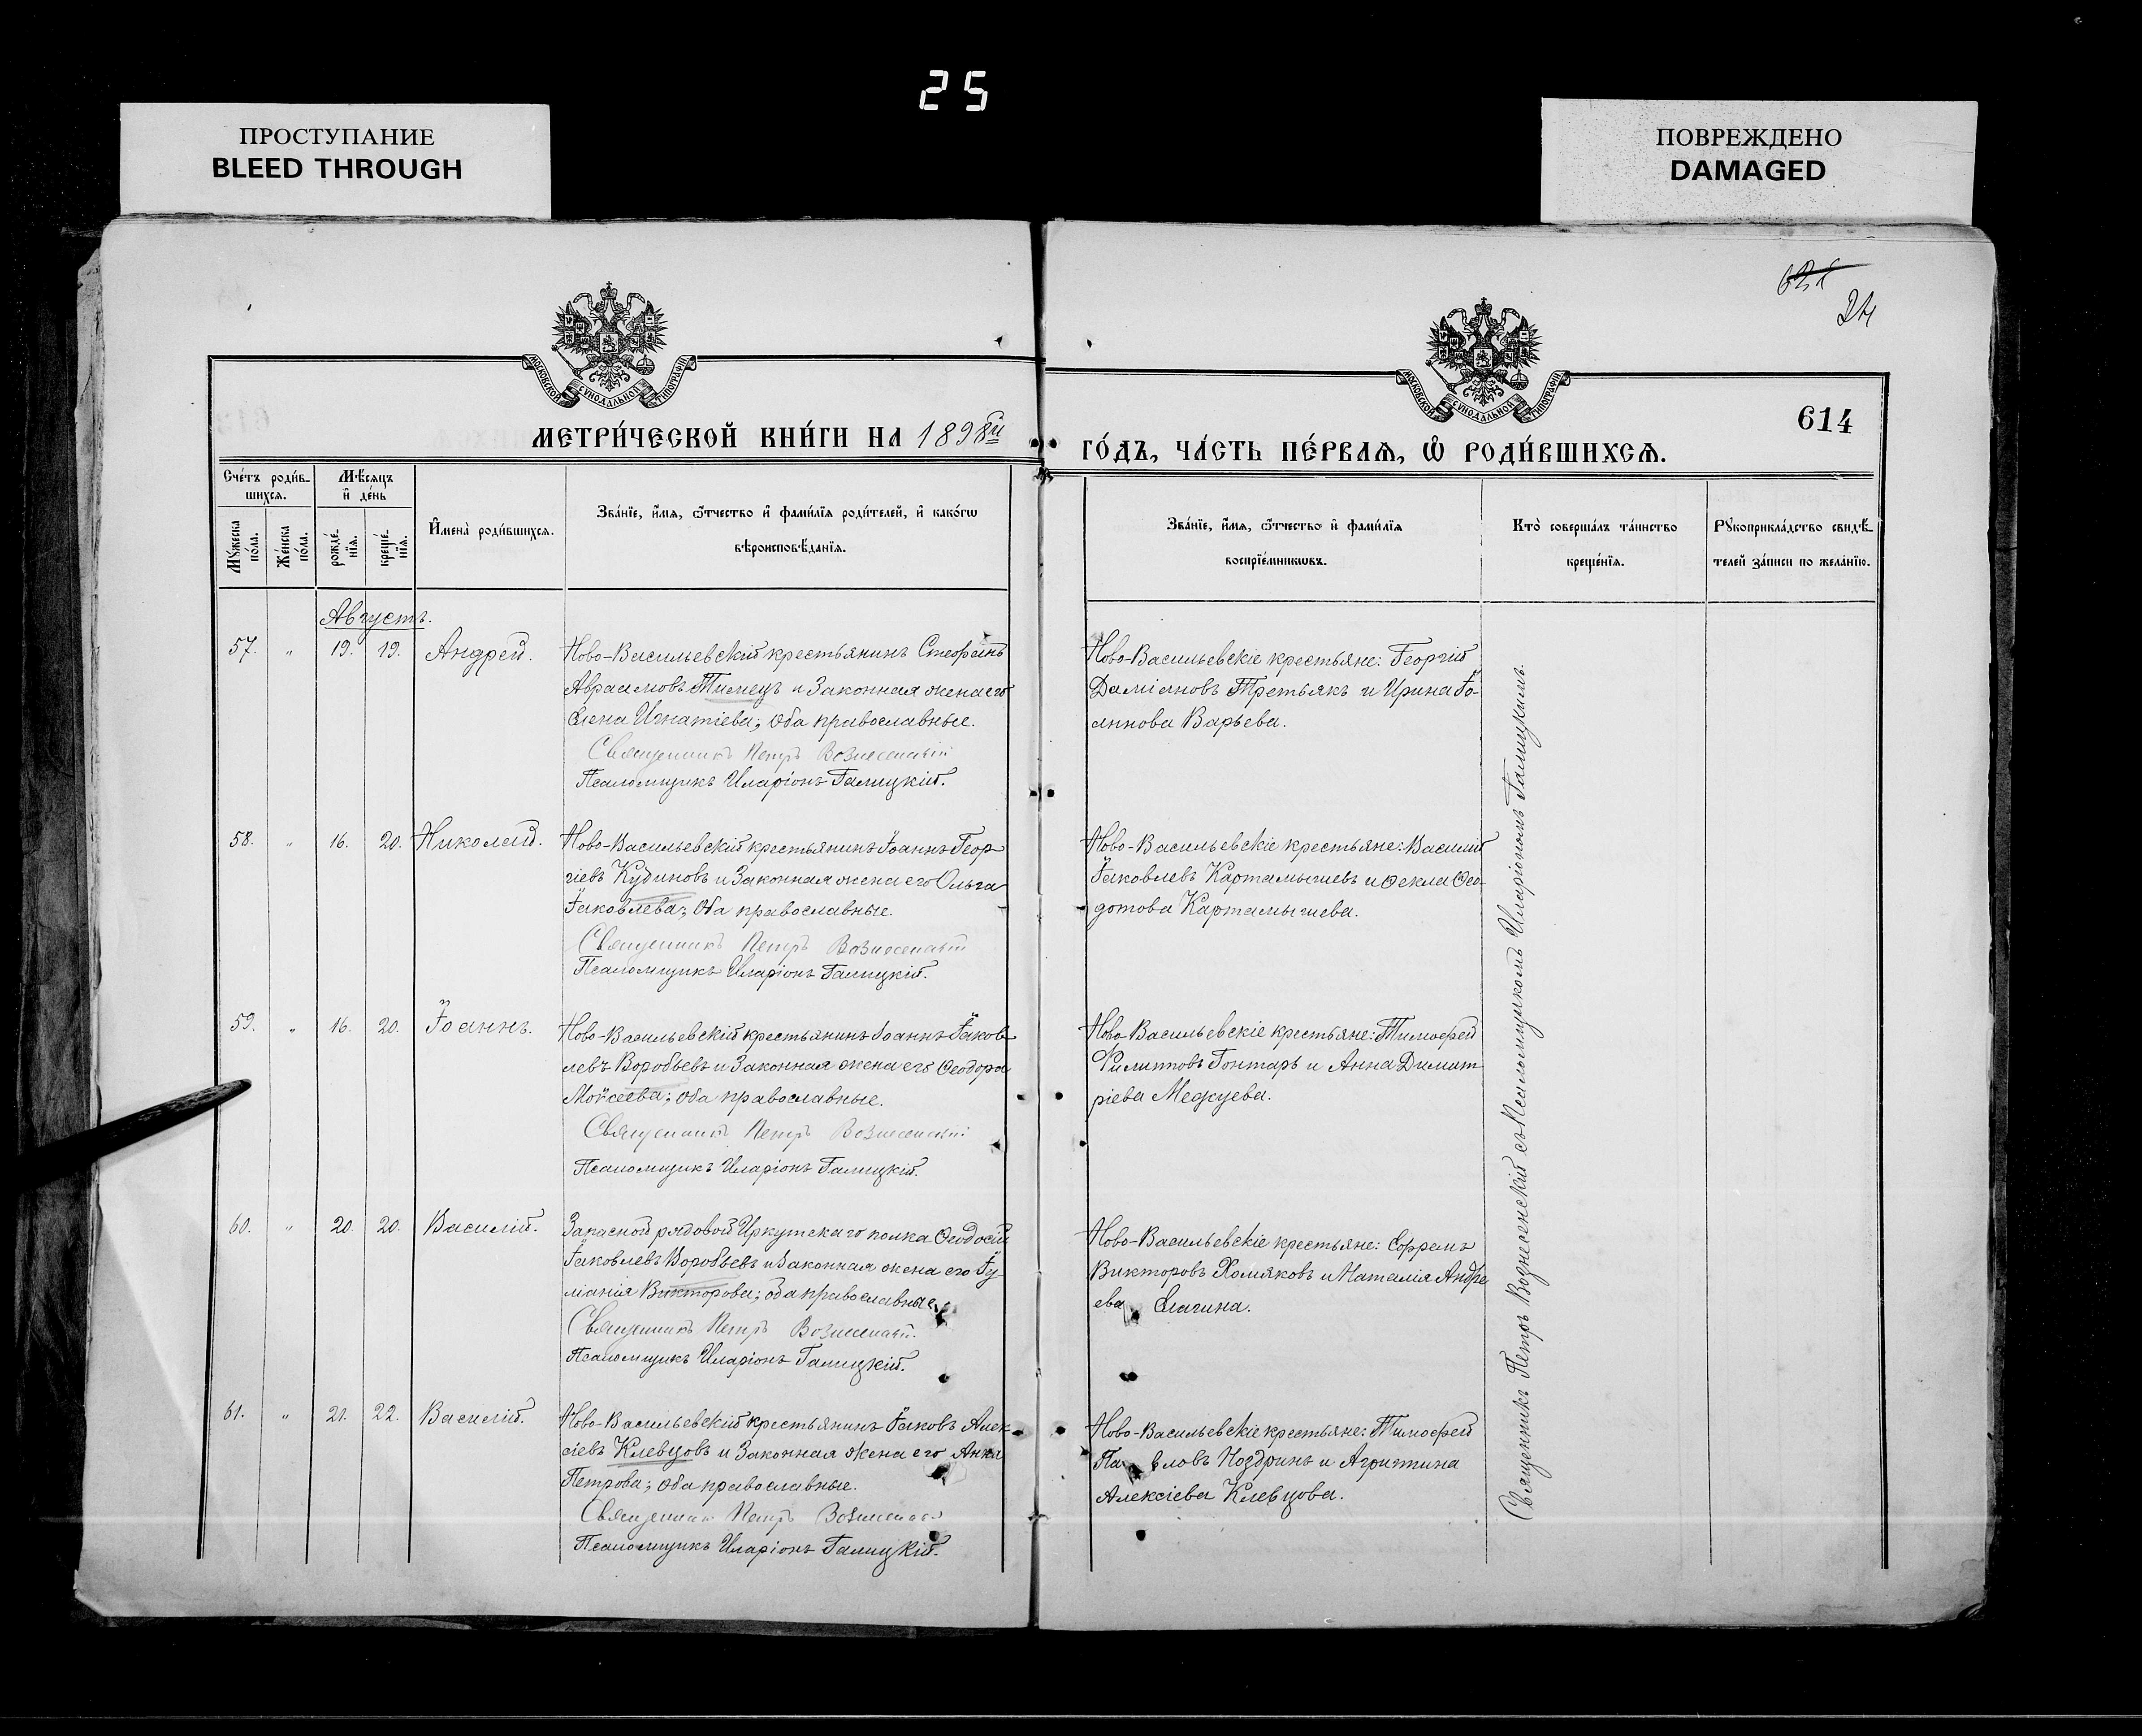 25
ПРОСТУПАНИЕ
BLEED THROUGH
ПОВРЕЖДЕНО
DAMAGED
24
614
МОСКОВСКОЙ СѴНОДАЛЬНОЙ ТИПОГРАФІИ
МОСКОВСКОЙ СѴНОДАЛЬНОЙ ТИПОГРАФІИ
МЕТРИ́ЧЕСКОЙ КНИ́ГИ НА 1898й
ГО́ДЪ, ЧА́СТЬ ПЕ́РВАѦ, Ѡ РОДИ́ВШИХСѦ.
Сче́тъ роди́в-
шихсѧ.
Мѣ́сѧцъ
и҆ де́нь
Мꙋ́жеска
по́ла.
Же́нска
по́ла.
рожде́-
нїѧ.
креще́-
нїѧ.
И҆мена̀ роди́вшихсѧ.
Зва́нїе, и҆́мѧ, ѻ҆́тчество и҆ фами́лїѧ роди́телей, и҆ како́гѡ
вѣроисповѣ́данїѧ.
Зва́нїе, и҆́мѧ, ѻ҆́тчество и҆ фами́лїѧ
воспрїе́мникѡвъ.
Кто̀ соверша́лъ та́инство
креще́нїѧ.
Рꙋкоприкла́дство свидѣ́-
телей за́писи по жела́нїю.
Августъ.
57. " 19. 19. Андрей.
Ново-Васильевскій крестьянинъ Стефанъ
Авраамовъ Тимецъ и законная жена его
Елена Игнатіева; оба православные.
Священникъ Петръ Вознесенскій
Псаломщикъ Иларіонъ Галицкій.
Ново-Васильевскіе крестьяне: Георгій
Даміановъ Третьякъ и Ирина Іо-
аннова Варьева.
58. " 16. 20. Николай.
Ново-Васильевскій крестьянинъ Іоаннъ Геор-
гіевъ Кудиновъ и законная жена его Ольга
Іаковлева; оба православные.
Священникъ Петръ Вознесенскій
Псаломщикъ Иларіонъ Галицкій.
Ново-Васильевскіе крестьяне: Василій
Іаковлевъ Картамышевъ и Ѳекла Ѳео-
дотова Картамышева.
59. " 16. 20. Іоаннъ.
Ново-Васильевскій крестьянинъ Іоаннъ Іаков-
левъ Воробьевъ и законная жена его Ѳеодора
Моѵсеева; оба православные.
Священникъ Петръ Вознесенскій
Псаломщикъ Иларіонъ Галицкій.
Ново-Васильевскіе крестьяне: Тимоѳей
Филипповъ Гонтарь и Анна Димит-
ріева Межуева.
60. " 20. 20. Василій.
Запасной рядовой Иркутскаго полка Ѳеодосій
Іаковлевъ Воробьевъ и законная жена его Іу-
ліанія Викторова; оба православные.
Священникъ Петръ Вознесенскій
Псаломщикъ Иларіонъ Галицкій.
Ново-Васильевскіе крестьяне: Ефремъ
Викторовъ Хомяковъ и Наталія Андре-
ева Елагина.
61. " 21. 22. Василій.
Ново-Васильевскій крестьянинъ Іаковъ Алек-
сіевъ Клевцовъ и законная жена его Анна
Петрова; оба православные.
Священникъ Петръ Вознесенскій
Псаломщикъ Иларіонъ Галицкій.
Ново-Васильевскіе крестьяне: Тимоѳей
Павловъ Ноздринъ и Агриппина
Алексіева Клевцова.
Священникъ Петръ Вознесенскій съ Псаломщикомъ Иларіономъ Галицкимъ.